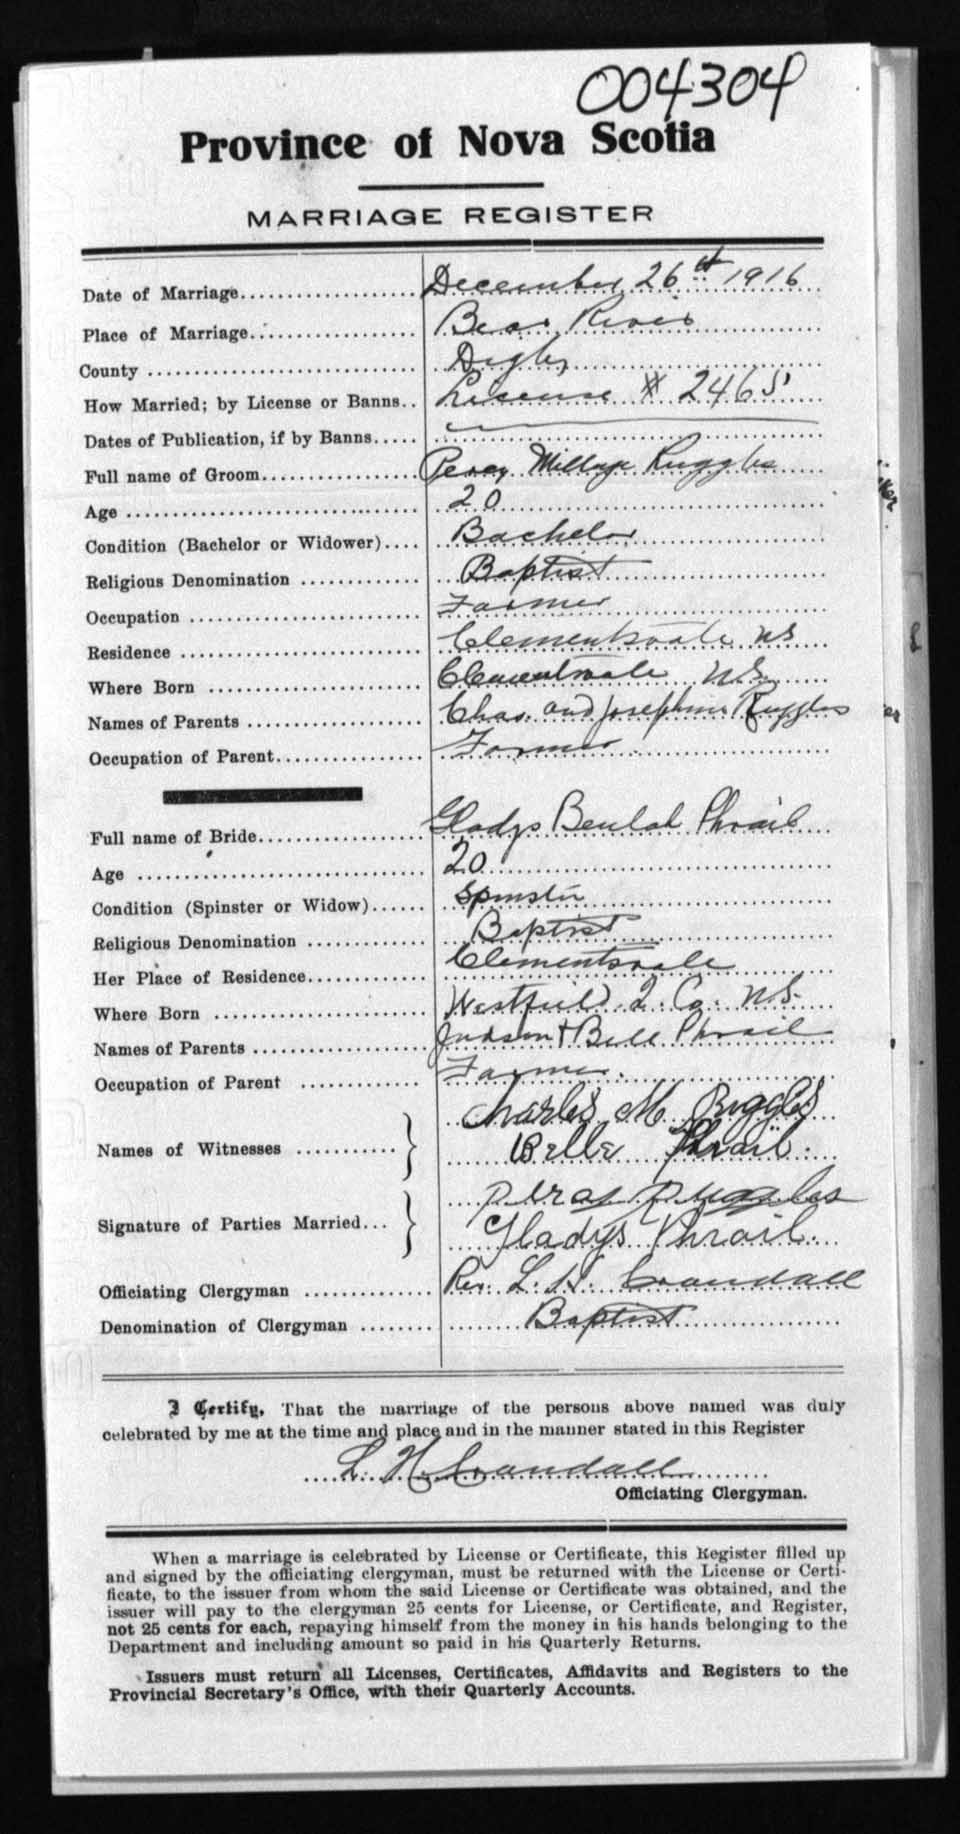 004304
Province of Nova Scotia
MARRIAGE REGISTER
Date of Marriage.................... December 26th 1916
Place of Marriage.................. Bear River
County ............................ Digby
How Married; by License or Banns.. License # 2465
Dates of Publication, if by Banns.....
Full name of Groom................. Percy Millage Ruggles
Age ............................... 20
Condition (Bachelor or Widower).... Bachelor
Religious Denomination ............ Baptist
Occupation ........................ Farmer
Residence ......................... Clementsvale NS
Where Born ........................ Clementsvale N.S.
Names of Parents .................. Chas. and Josephine Ruggles
Occupation of Parent............... Farmer
Full name of Bride.................. Gladys Beulah Phrail
Age ............................... 20
Condition (Spinster or Widow)...... Spinster
Religious Denomination ............ Baptist
Her Place of Residence............. Clementsvale
Where Born ........................ Westfield Q. Co. N.S.
Names of Parents .................. Judson + Bell Phrail
Occupation of Parent ............. Farmer.
Charles M Ruggles
Names of Witnesses ........... } Belle Phrail.
Percy Ruggles
Signature of Parties Married... } Gladys Phrail.
Officiating Clergyman ............. Rev. L. H. Crandall
Denomination of Clergyman ........ Baptist
I Certify, That the marriage of the persons above named was duly
celebrated by me at the time and place and in the manner stated in this Register
L. H. Crandall
Officiating Clergyman.
When a marriage is celebrated by License or Certificate, this Register filled up
and signed by the officiating clergyman, must be returned with the License or Certi-
ficate, to the issuer from whom the said License or Certificate was obtained, and the
issuer will pay to the clergyman 25 cents for License, or Certificate, and Register,
not 25 cents for each, repaying himself from the money in his hands belonging to the
Department and including amount so paid in his Quarterly Returns.
Issuers must return all Licenses, Certificates, Affidavits and Registers to the
Provincial Secretary's Office, with their Quarterly Accounts.